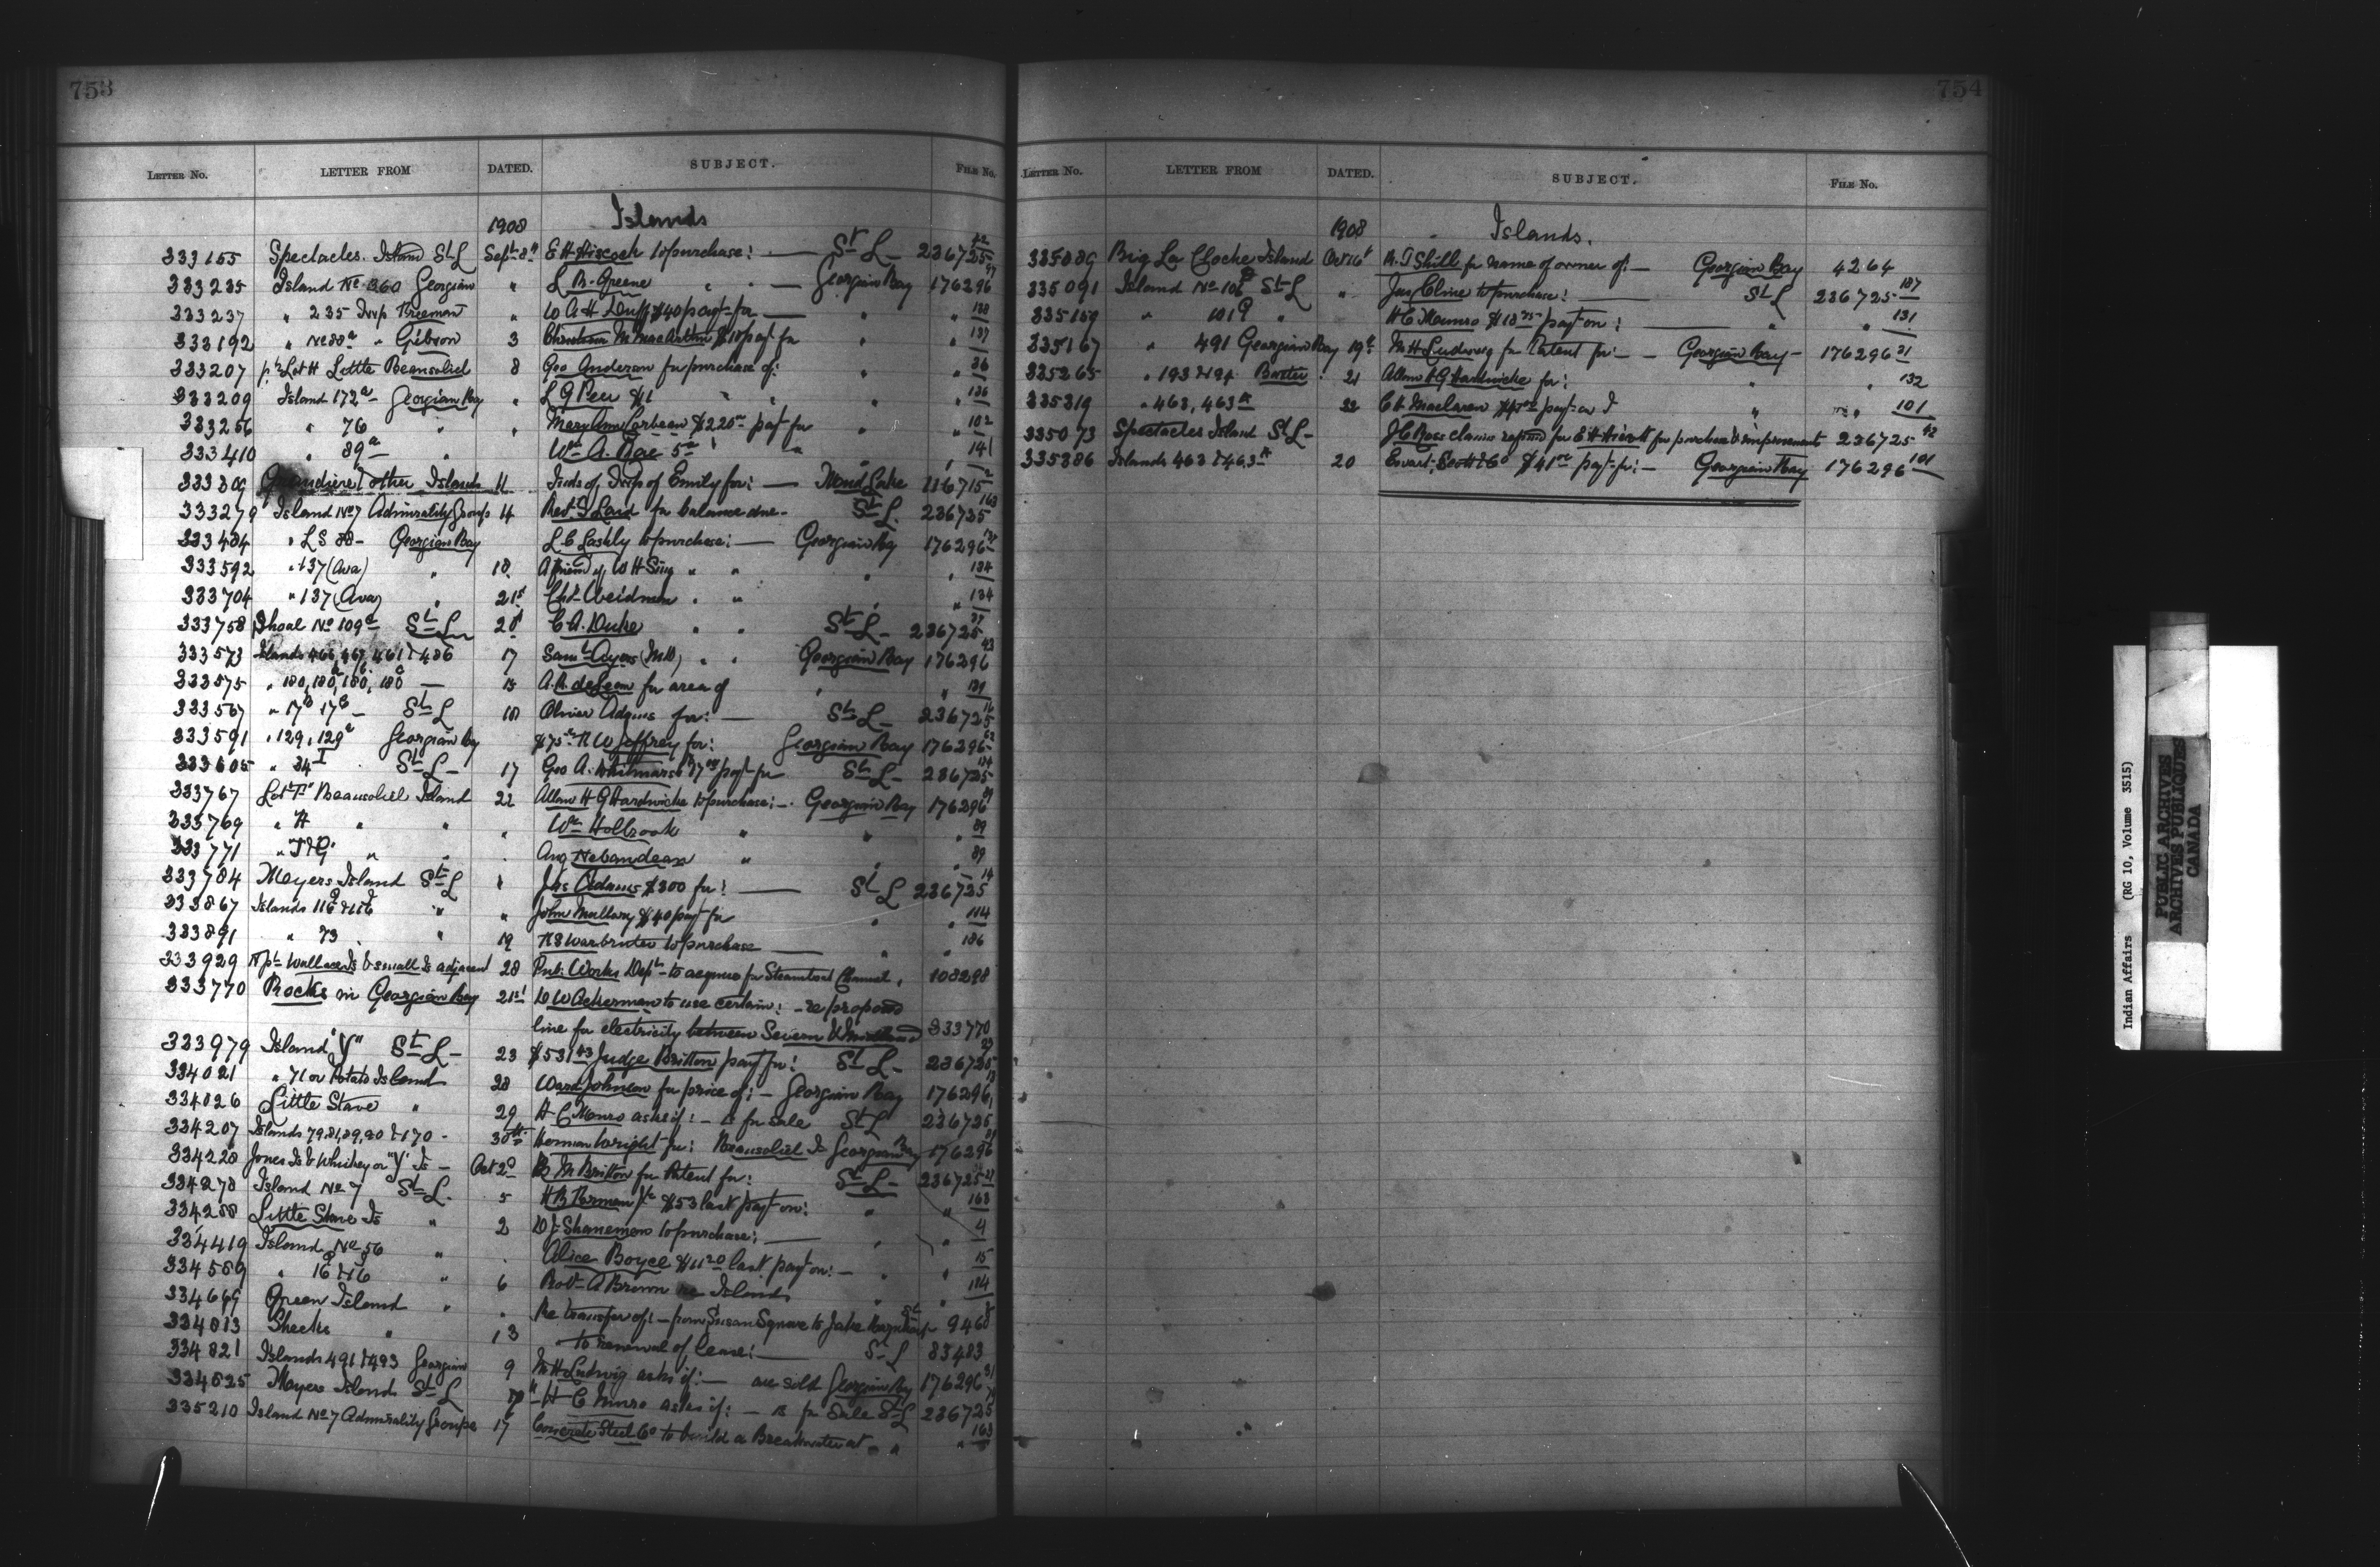 753
LETTER NO. LETTER FROM DATED. SUBJECT. FILE No.
1908 Islands
333155 Spectacles Island St L Sept 8th E H Hiscock to purchase: — St L — 236725 42
333235 Island No 360 Georgian " L B. Greene " " — Georgian Bay 176296 97
333237 " 235 Twp Freeman " W A H Duff $40 payt for — " " 138
333192 " No 88a " Gibson 3 Christian M MacArthur $10 payt for " " 137
333207 pt Lot H Little Beausoliel 8 Geo Anderson for purchase of: " " 36
333209 Island 172a Georgian Bay " L G Peer $1 " " " 136
333256 " 76 " " Mary Ann Corbeau $220 payt for " " 102
333410 " 89a " Wm A. Rae 5 " " 141
333309 & other Islands 11 Inds of Twp of Emily for: — Mud Lake 116715 2
333279 Island No 7 Admiralty Group 14 Revd Laid for balance due — St L. 236725 163
333484 " L S 88 — Georgian Bay L C Lashly to purchase: — Georgian Bay 176296
333592 " 137 (Ava) " 18 A friend of W H Sing " " " " 134
333704 " 137 (Ava) " 21st Chs Weidman " " " " 134
333758 Shoal No 109a St L 20 C A. Duke " " St L — 236725 37
333573 Islands 466, 467, 461 & 486 17 Saml Ayers (MD) " " Georgian Bay 176296 43
333575 " 180, 180a, 180b, 180c — 15 A. R. deLeon for area of " " 139
333567 " 17B 17C — St L 18 Oliver Adams for: — St L — 236725 16
333591 " 129, 129a Georgian Bay $75 R W Jeffrey for: Georgian Bay 176296 62
333605 " 34 I St L — 17 Geo A. Whitmarsh payt for St L — 236725 174
333767 Lot "F" Beausoliel Island 22 Allan H G Hardwicke to purchase: — Georgian Bay 176296 89
333769 " H " " " Wm Holbrook " " " 89
333771 " J & G " " " Aug Nebandeau " " " 89
333784 Meyers Island St L " Jas Adams $300 for: — St L 236725 14
333867 Islands 116 & 116 " " John Mullory $40 payt for " " 114
333891 " 73 " 19 to purchase — " " 186
333929 Npt Wallace Is & small Is adjacent 28 Pub: Works Dept to acquire for Steamboat Channel. 108298
333770 Rocks in Georgian Bay 21st D W Ackerman to use certain: — re proposed
line for electricity between Severn & Midland 333770
333979 Island "Y" St L — 23 $531 43 Judge Britton payt for: St L — 236725 27
334021 " 71 or Potato Island 28 Ward Johnson for price of: — Georgian Bay 176296 13
334026 Little Stave " 29 H C Munro asks if: — is for sale St L 236725 1
334207 Islands 79, 81, 89, 90 & 170 — 30th Herman Wright for: Beausoliel Is Georgian Bay 176296 89
334228 Jones Is & Whiskey or "Y" Is — Oct 2d B. M Britton for Patent for: St L — 236725 27
334278 Island No 7 St L. 5 H B Perman $53 last payt on: " " 163
334288 Little Stave Is " 2 D J Shaneman to purchase: — " " 4
334419 Island No 56 " " Alice Boyce $11 20 last payt on: — " " 15
334589 " 16 & 16 " 6 Robt A Brown re Islands " " 184
334669 Green Island " " Re transfer of: — from Susan Square to Jake Barnhart St L 9468
334813 Sheeks " 13 to renewal of lease: — St L 83483
334821 Islands 491 & 493 Georgian 9 M H Ludwig asks if: — are sold Georgian Bay 176296 31
334825 Meyers Island St L H C Munro asks if: — is for Sale St L 236725 14
335210 Island No 7 Admiralty Groupe 17 Concrete Steel Co to build a Breakwater at " " 163
754
LETTER NO. LETTER FROM DATED. SUBJECT. FILE No.
1908 Islands.
335089 Big La Cloche Island Oct 16 R. J Shill for name of owner of: — Georgian Bay 4264
335091 Island No 10 St L " Jas Cline to purchase: — St L 236725 187
335159 " 101 " H C Munro $18 payt on: — " " 131
335167 " 491 Georgian Bay 19th M H Ludwig for Patent for: — Georgian Bay — 176296 31
335265 " 193 & 194 Baxter 21 Allan H G Hardwicke for: " " 132
335319 " 463, 463a 22 C H Maclaren payt on " " 101
335073 Spectacles Island St L — J C Ross claims refund for E H Hiscock for purchase & improvements 236725 42
335386 Islands 463 & 463a 20 Ewart, Scott & Co $41 payt for: — Georgian Bay 176296 101
Indian Affairs (RG 10, Volume 3515)
PUBLIC ARCHIVES
ARCHIVES PUBLIQUES
CANADA